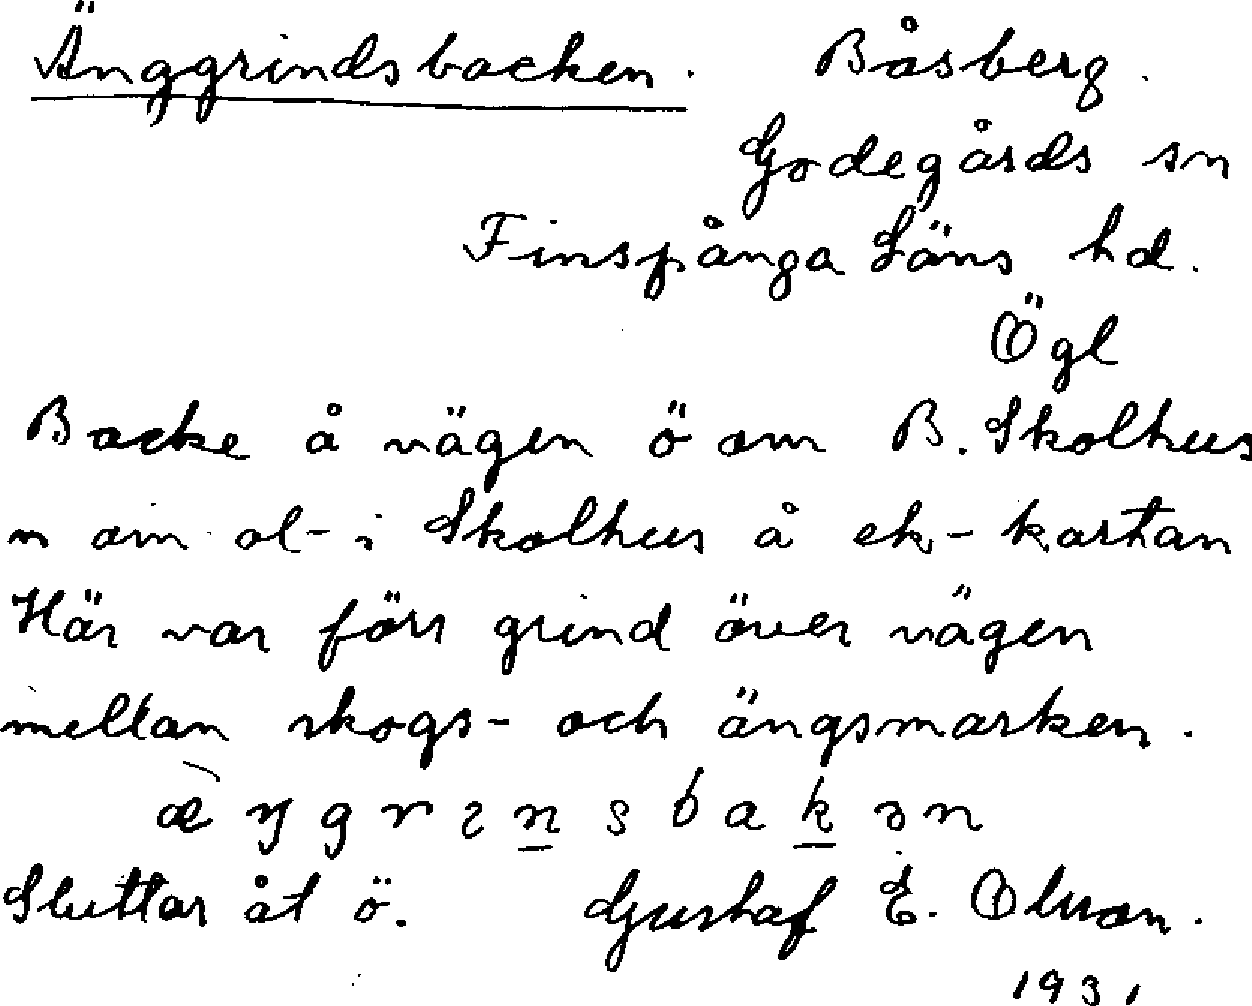 Änggrindsbacken. Båsberg.
Godegårds sn
Finspånga Läns hd.
Ögl
Backe å vägen ö om B. Skolhus
n om ol- i Skolhus å ek-kartan
Här var förr grind över vägen
mellan skogs- och ängsmarken.
Sluttar åt ö. Gustaf E. Olsson.
1931